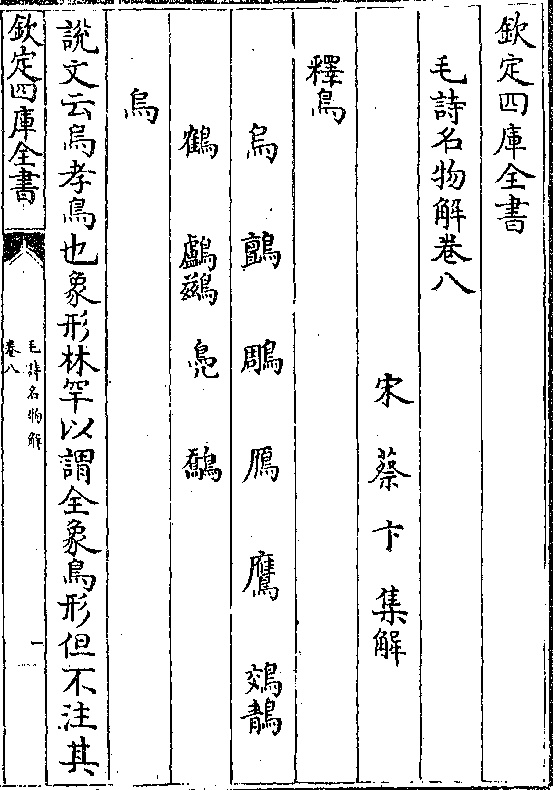 欽定四庫全書
毛詩名物解卷八
宋 蔡卞 集解
釋鳥
烏 鸇 鵰 鴈 鷹 鵁鶄
鶴 鸕鷀 鳧 鷮
烏
說文云烏孝鳥也象形林罕以謂全象鳥形但不注其
欽定四庫全書
毛詩名物解
卷八
一